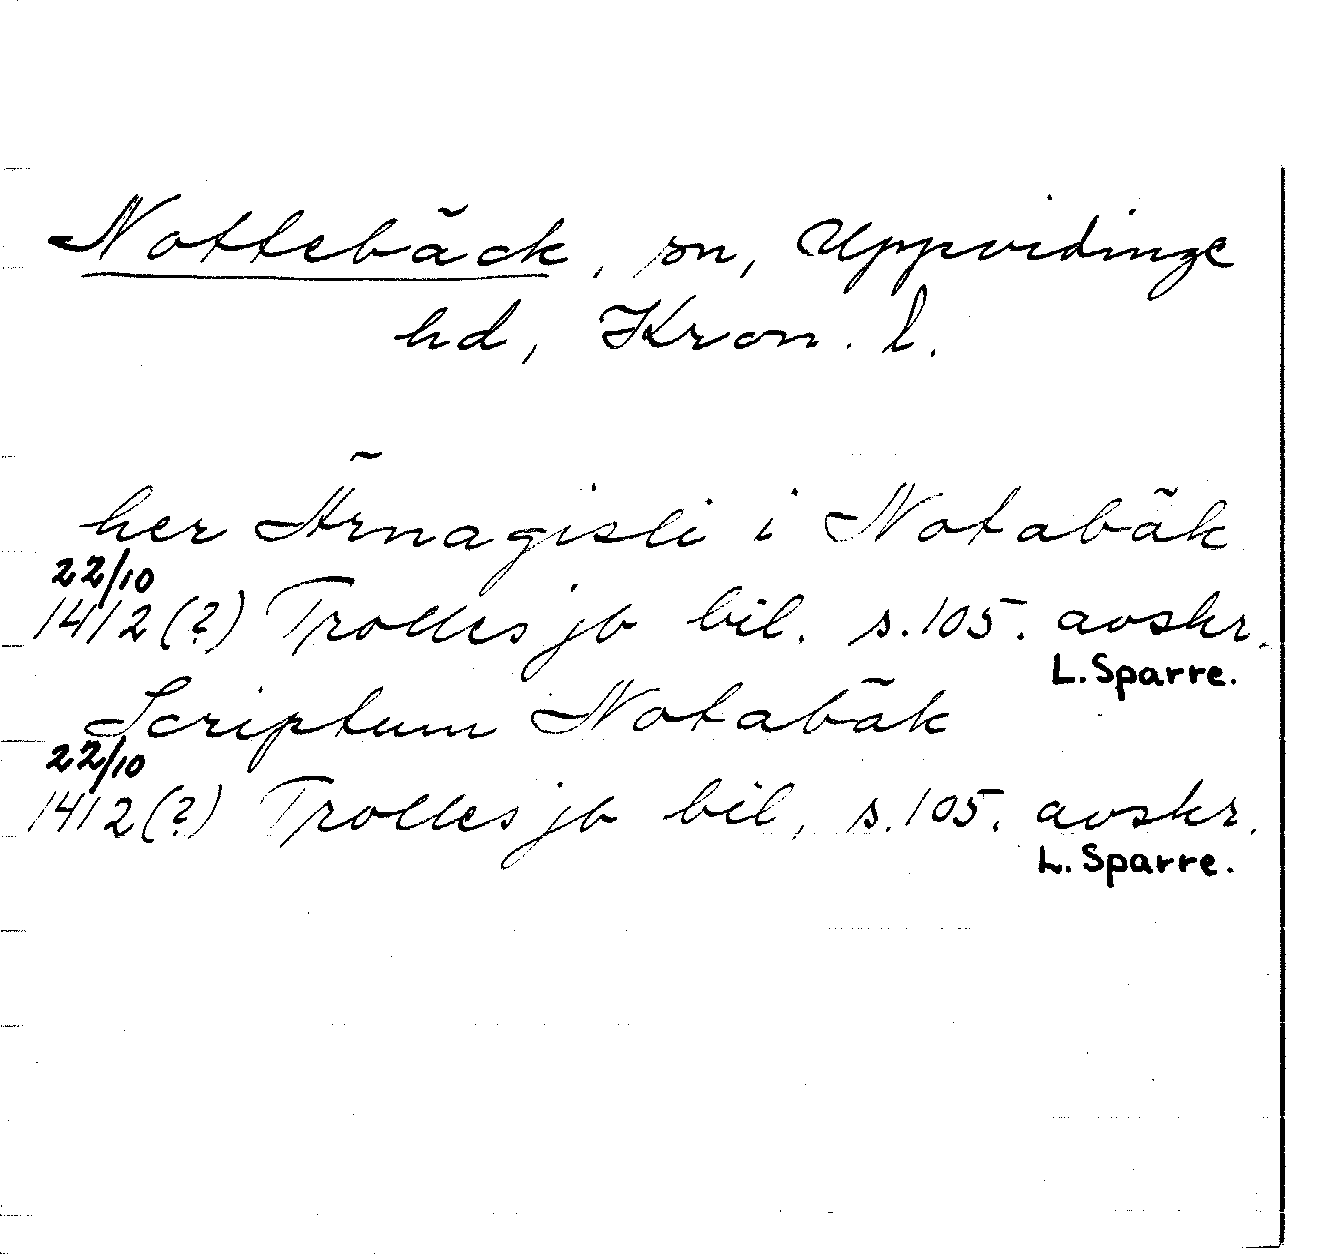 Nottebäck, sn, Uppvidinge
hd, Kron. l.
her Ärnagisli i Notabäk
22/10
1412(?) Trolles jb bil. s.105. avskr.
L. Sparre.
Scriptum Notabäk
22/10
1412(?) Trolles jb bil, s.105. avskr.
L. Sparre.